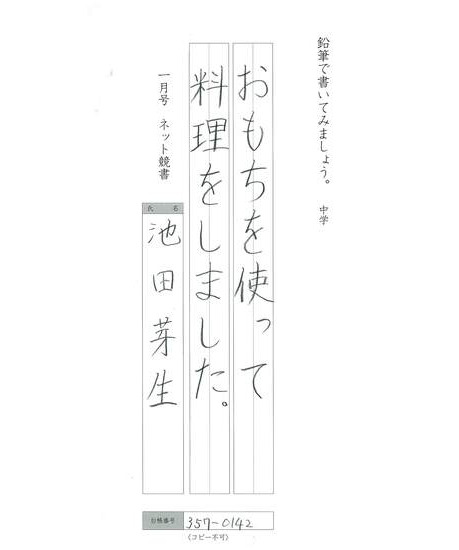 鉛筆で書いてみましょう。 中学
おもちを使って
料理をしました。
一月号 ネット競書
氏 名
池田芽生
357-0142
(コピー不可)